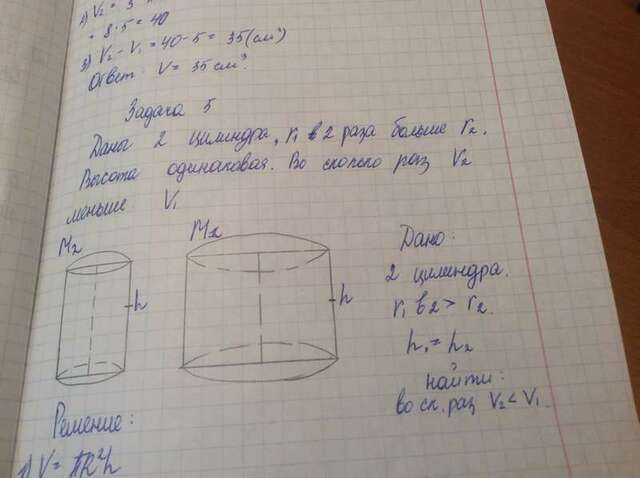 2) V₂ = 3
= 8·5 = 40
3) V₂ - V₁ = 40 - 5 = 35 (см³)
Ответ: V = 35 см³.
Задача 5
Даны 2 цилиндра, r₁ в 2 раза больше r₂.
Высота одинаковая. Во сколько раз V₂
меньше V₁
M₂
M₂
h
h
Дано:
2 цилиндра.
r₁ в 2 > r₂.
h₁ = h₂
найти:
во ск. раз V₂ < V₁.
Решение:
1) V = πR²h